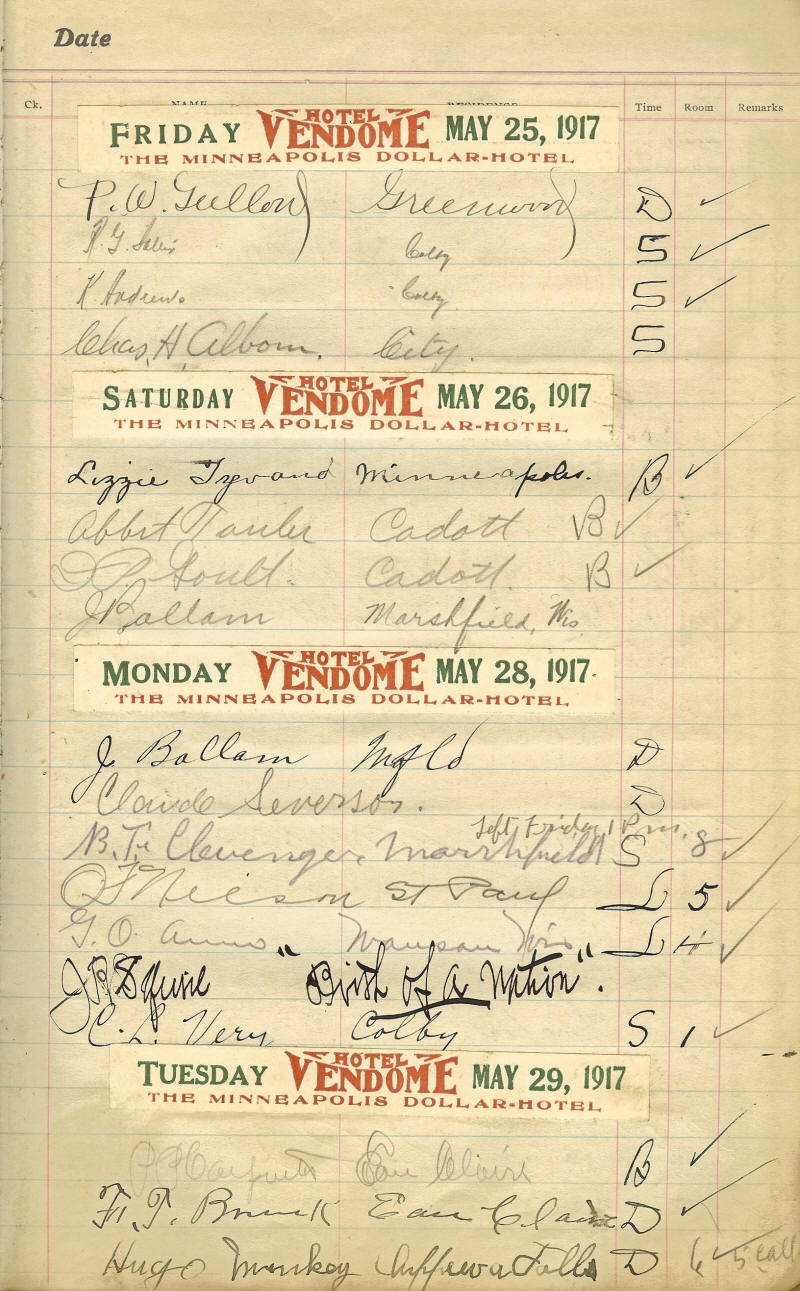 Date
Ck. NAME RESIDENCE Time Room Remarks
FRIDAY HOTEL VENDOME MAY 25, 1917
THE MINNEAPOLIS DOLLAR-HOTEL
P. W. Greenwood D ✓
Colby S ✓
K. Andrews Colby S ✓
Chas. H. Alborn. City. S
SATURDAY HOTEL VENDOME MAY 26, 1917
THE MINNEAPOLIS DOLLAR-HOTEL
Lizzie Minneapolis. B ✓
Cadott B ✓
Cadott. B ✓
J Ballam Marshfield, Wis
MONDAY HOTEL VENDOME MAY 28, 1917.
THE MINNEAPOLIS DOLLAR-HOTEL
J Ballam Mfld D
Claude Severson. D
Left Friday 1 P.m.
B. F. Clevenger Marshfield S 8 ✓
Neeson St Paul L 5 ✓
G. O. Wausau Wis L 4 ✓
J R Squire "Birth of a Nation".
C. L. Very Colby S 1 ✓
TUESDAY HOTEL VENDOME MAY 29, 1917
THE MINNEAPOLIS DOLLAR-HOTEL
Eau Claire B ✓
F. T. Eau Claire D ✓
Hugo Falls D 6 ✓ 5 call